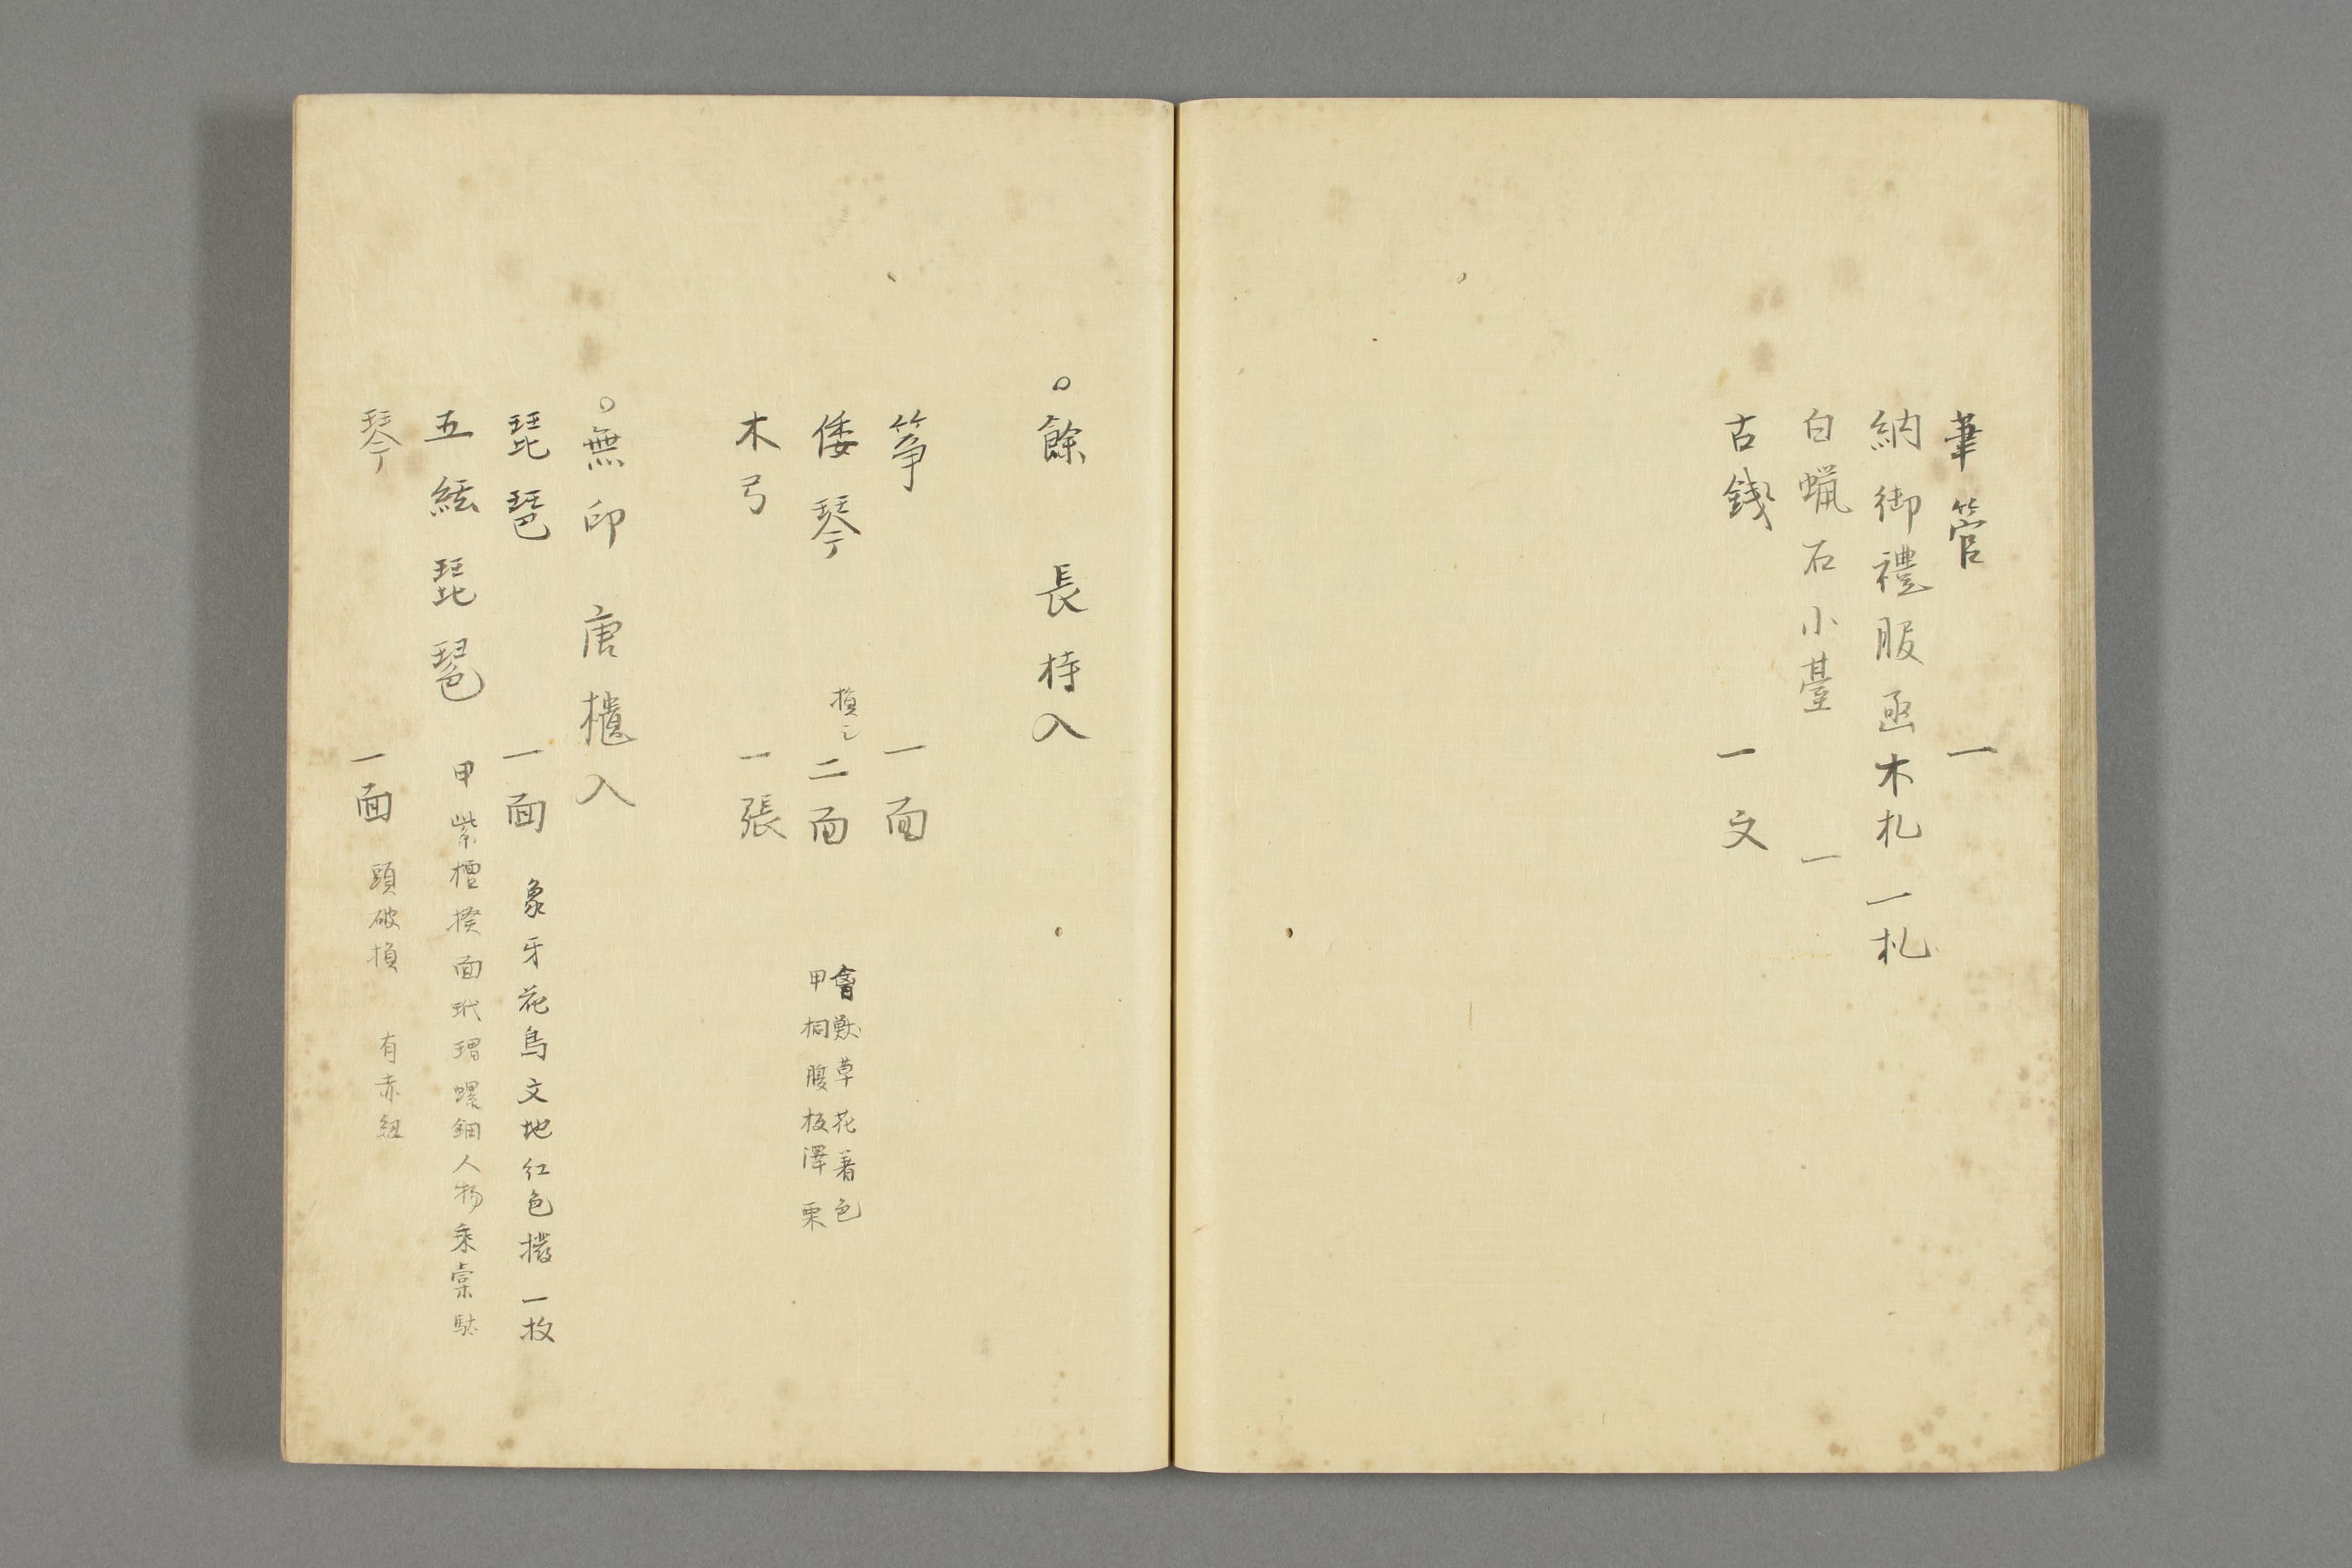 筆管　一
納御禮服函木札　一札
白蝋石小臺　一
古銭　一文
○餘　長持入
筝　一面
倭琴　損シ二面　會獣草花着色
甲桐腹板澤栗
木弓　一張
○無印　唐櫃入
琵琶　一面　象牙花鳥文地紅色撥一枚
五絃琵琶　甲紫檀揆面玳瑁螺鈿人物乗槖駄
琴　一面　頭破損　有赤紐